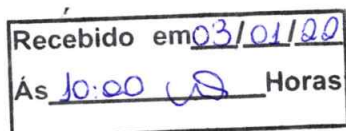 Recebido em 03/01/22
Ás 10:00 Horas